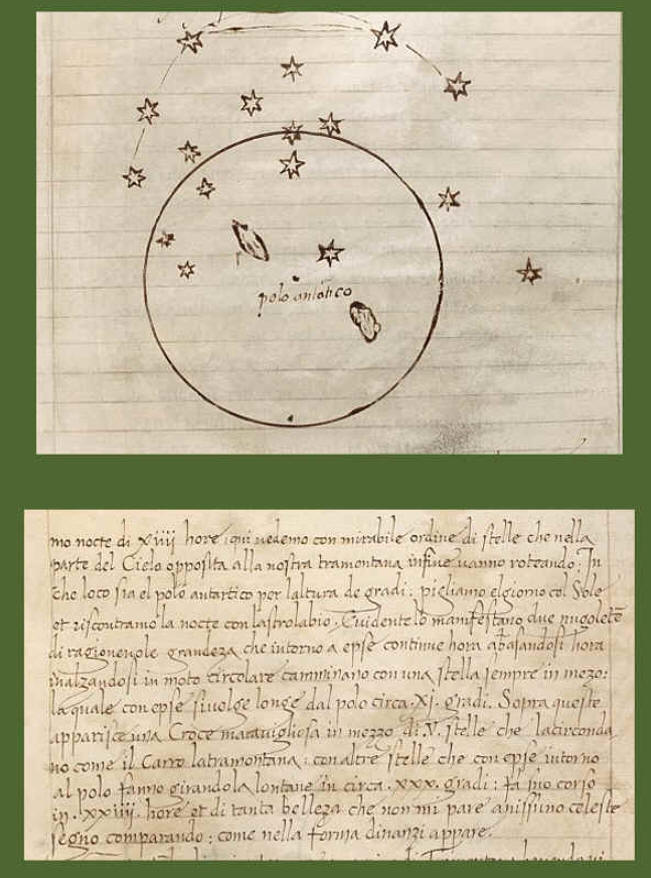 polo antãtico
mo nocte di xiiii hore: qui vedemo con mirabile ordine di stelle che nella
parte del Cielo opposita alla nostra tramontana infine vanno roteando: In
che loco sia el polo antartico per laltura de gradi: pigliamo elgiorno col Sole
et riscontramo la nocte con lastrolabio. Evidente lo manifestano due nugolette
di ragionevole grandeza che intorno a epse continue hora abasandosi hora
inalzandosi in moto circolare camminano con una stella sempre in mezo:
la quale con epse si volge longe dal polo circa .xj. gradi. Sopra queste
apparisce una Croce maravigliosa in mezzo di .V. stelle che lacirconda
no come il Carro latramontana: con altre stelle che con epse intorno
al polo fanno girandola lontane in circa .xxx. gradi: fa suo corso
in .xxiiii. hore et di tanta belleza che non mi pare anissuno celeste
segno comparando: come nella forma dinanzi appare.